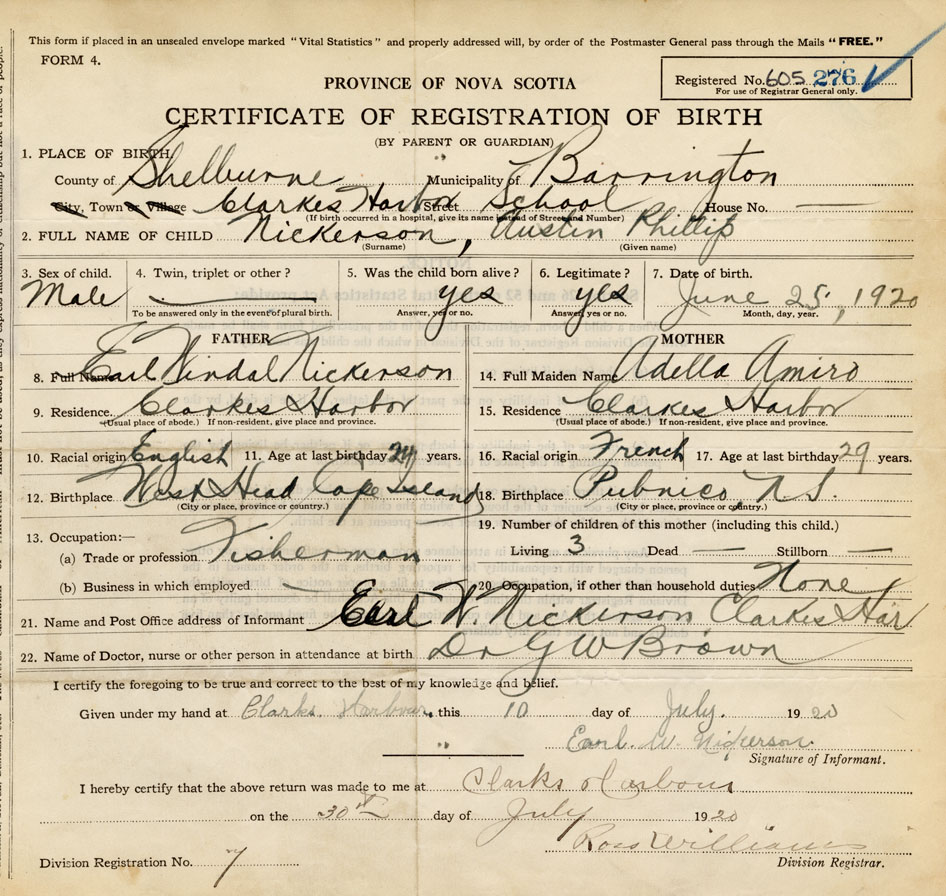 This form if placed in an unsealed envelope marked "Vital Statistics" and properly addressed will, by order of the Postmaster General pass through the Mails "FREE."
FORM 4.
Registered No. 605 276
For use of Registrar General only.
PROVINCE OF NOVA SCOTIA
CERTIFICATE OF REGISTRATION OF BIRTH
(BY PARENT OR GUARDIAN)
1. PLACE OF BIRTH.
County of Shelburne Municipality of Barrington
City, Town or Village Clarkes Harbor Street School House No. —
(If birth occurred in a hospital, give its name instead of Street and Number)
2. FULL NAME OF CHILD Nickerson, Austin Phillip
(Surname) (Given name)
3. Sex of child. 4. Twin, triplet or other? 5. Was the child born alive? 6. Legitimate? 7. Date of birth.
Male — yes yes June 25, 1920
To be answered only in the event of plural birth. Answer, yes or no. Answer, yes or no. Month, day, year.
FATHER MOTHER
8. Full Name Earl Windal Nickerson 14. Full Maiden Name Adella Amiro
9. Residence. Clarkes Harbor 15. Residence Clarkes Harbor
(Usual place of abode.) If non-resident, give place and province. (Usual place of abode.) If non-resident, give place and province.
10. Racial origin English 11. Age at last birthday years. 16. Racial origin French 17. Age at last birthday 29 years.
12. Birthplace West Head Cape Island 18. Birthplace Pubnico, N.S.
(City or place, province or country.) (City or place, province or country.)
13. Occupation:— 19. Number of children of this mother (including this child.)
(a) Trade or profession Fisherman Living 3 Dead — Stillborn —
(b) Business in which employed — 20. Occupation, if other than household duties None
21. Name and Post Office address of Informant Earl W. Nickerson Clarkes Har
22. Name of Doctor, nurse or other person in attendance at birth Dr G W Brown
I certify the foregoing to be true and correct to the best of my knowledge and belief.
Given under my hand at Clarks Harbour, this 10 day of July. 1920
Earl. W. Nickerson.
Signature of Informant.
I hereby certify that the above return was made to me at Clarks Harbour
on the 30th day of July 1920
Ross Williams
Division Registration No. 7 Division Registrar.